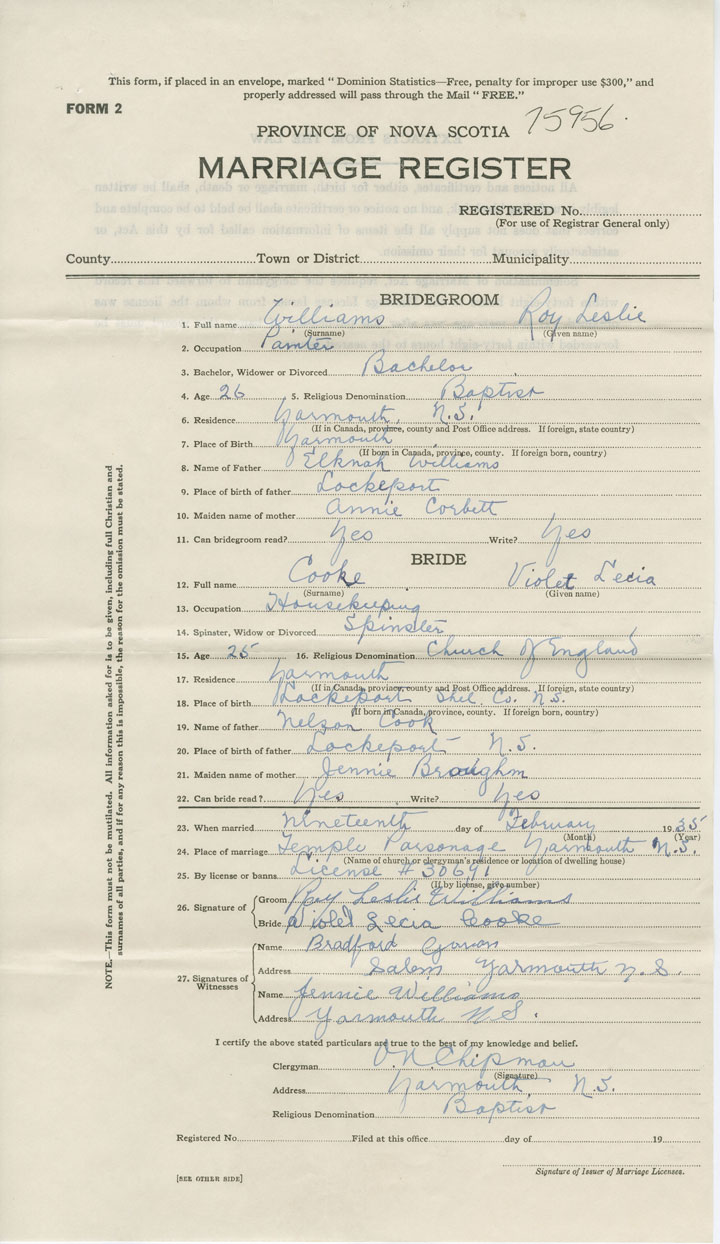 This form, if placed in an envelope, marked " Dominion Statistics—Free, penalty for improper use $300," and
properly addressed will pass through the Mail " FREE."
FORM 2
75956.
PROVINCE OF NOVA SCOTIA
MARRIAGE REGISTER
REGISTERED No.
(For use of Registrar General only)
County Town or District Municipality
BRIDEGROOM
1. Full name Williams Roy Leslie
(Surname) (Given name)
2. Occupation Painter
3. Bachelor, Widower or Divorced Bachelor
4. Age 26 5. Religious Denomination Baptist
6. Residence Yarmouth, N.S.
(If in Canada, province, county and Post Office address. If foreign, state country)
7. Place of Birth Yarmouth
(If born in Canada, province, county. If foreign born, country)
8. Name of Father Elknah Williams
9. Place of birth of father Lockeport
10. Maiden name of mother Annie Corbett
11. Can bridegroom read? Yes Write? Yes
BRIDE
12. Full name Cooke Violet Lecia
(Surname) (Given name)
13. Occupation Housekeeping
14. Spinster, Widow or Divorced Spinster
15. Age 25 16. Religious Denomination Church of England
17. Residence Yarmouth
(If in Canada, province, county and Post Office address. If foreign, state country)
18. Place of birth Lockeport Shel. Co. N.S.
(If born in Canada, province, county. If foreign born, country)
19. Name of father Nelson Cook
20. Place of birth of father Lockeport N.S.
21. Maiden name of mother Jennie
22. Can bride read? Yes Write? Yes
23. When married Nineteenth day of February 1935
(Month) (Year)
24. Place of marriage Temple Parsonage Yarmouth N.S.
(Name of church or clergyman's residence or location of dwelling house)
25. By license or banns License # 30691
(If by license, give number)
26. Signature of Groom Roy Leslie Williams
Bride Violet Lecia Cooke
27. Signatures of Witnesses
Name Bradford
Address Salem Yarmouth N.S.
Name Jennie Williams
Address Yarmouth N.S.
I certify the above stated particulars are true to the best of my knowledge and belief.
Clergyman O.N. Chipman
(Signature)
Address Yarmouth, N.S.
Religious Denomination Baptist
Registered No. Filed at this office day of 19
Signature of Issuer of Marriage Licenses.
[SEE OTHER SIDE]
NOTE.—This form must not be mutilated. All information asked for is to be given, including full Christian and
surnames of all parties, and if for any reason this is impossible, the reason for the omission must be stated.